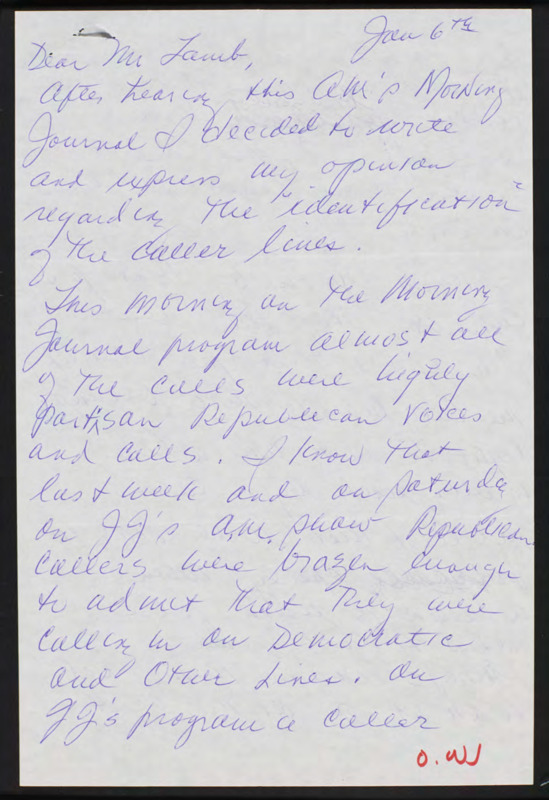 Jan 6th
Dear Mr Lamb,
After hearing this AM's Morning
Journal I decided to write
and express my opinion
regarding the "identification"
of the caller lines.
This morning on the Morning
Journal program almost all
of the calls were highly
partisan Republican voices
and calls. I know that
last week and on Saturday
on JJ's a.m. show Republican
callers were brazen enough
to admit that they were
calling in on Democratic
and Other Lines. On
JJ's program a caller